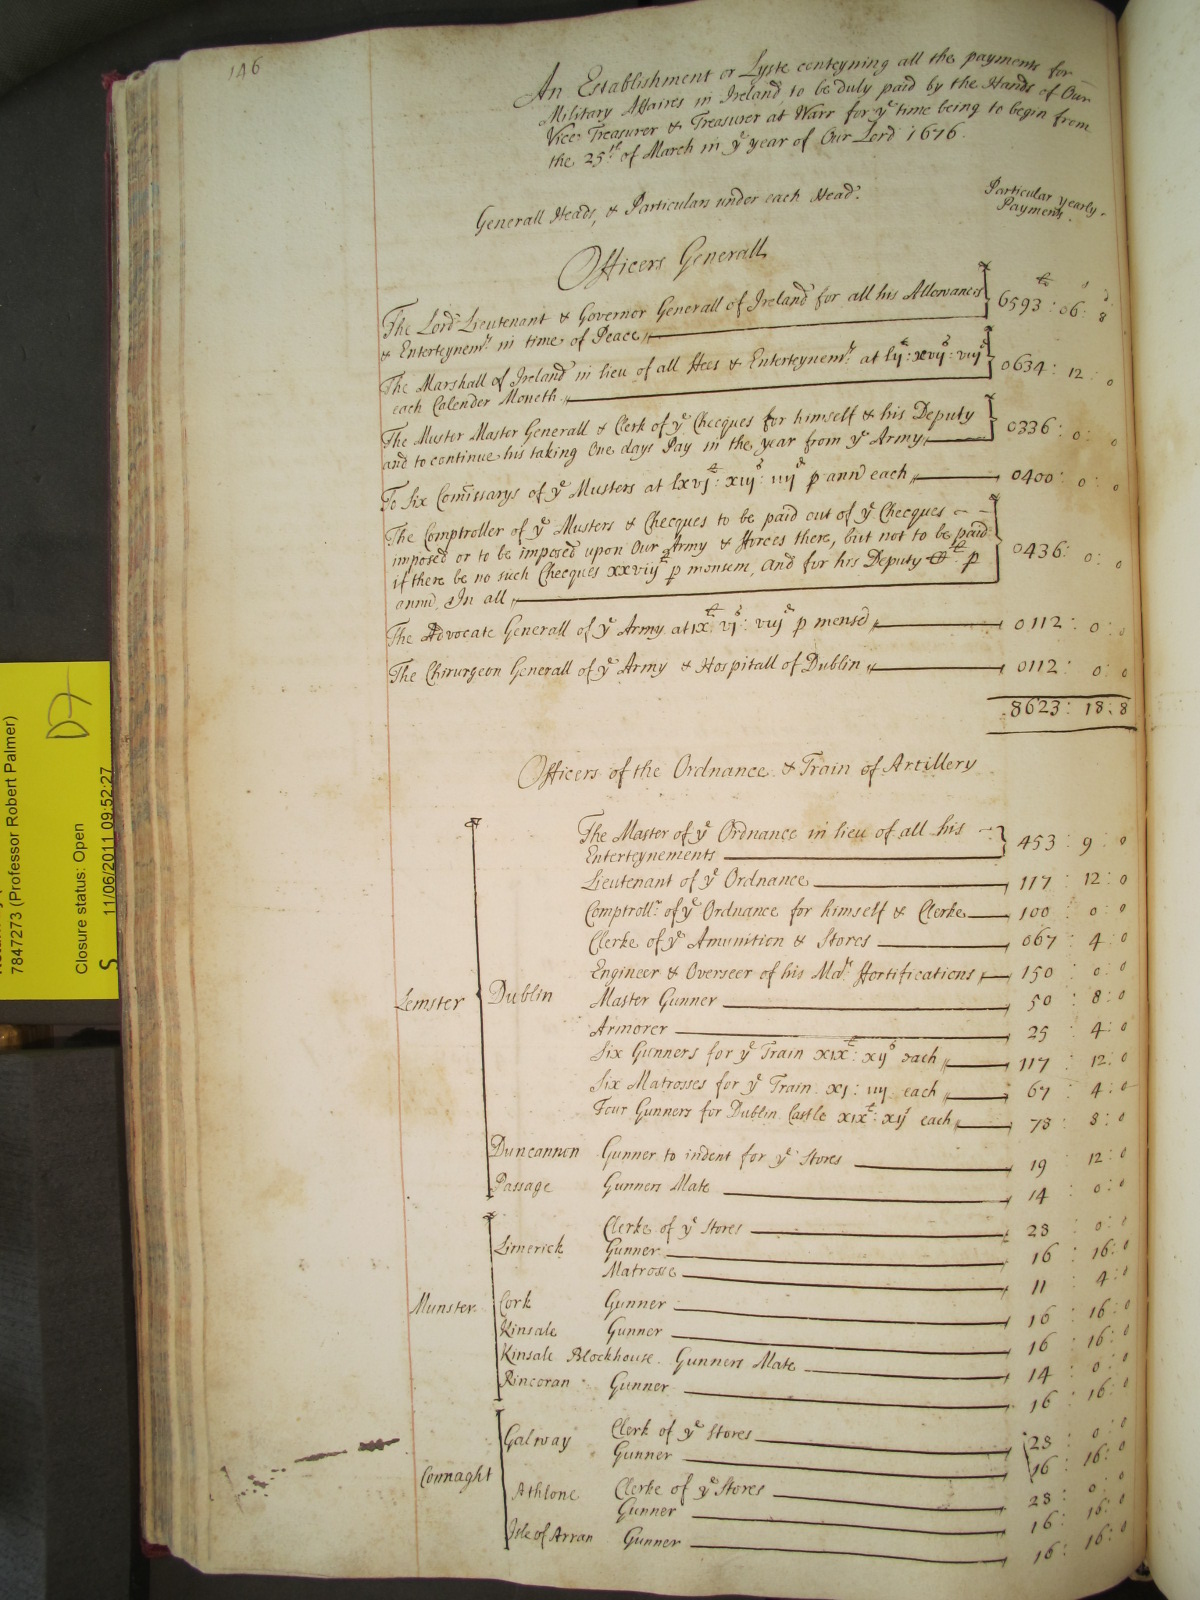 146
An Establishment or Lyste conteyning all the payments for
Military Affaires in Ireland, to be duly paid by the Hands of Our
Vice Treasurer & Treasurer at Warr for yᵉ time being to begin from
the 25th of March in yᵉ year of Our Lord 1676.
Generall Heads, & Particulars under each Head.
Particular yearly
Payments.
Officers Generall
The Lord Lieutenant & Governor Generall of Ireland for all his Allowances
& Enterteynemts in time of Peace 6593 : 06 : 8
The Marshall of Ireland in lieu of all Fees & Enterteynemts at lij : xvij : viij
each Calender Moneth 0634 : 12 : 0
The Muster Master Generall & Clerk of yᵉ Checques for himself & his Deputy
and to continue his taking One days Pay in the year from yᵉ Army 0336 : 0 : 0
To Six Comissarys of yᵉ Musters at lxvj : xiij : iiij p ann each 0400 : 0 : 0
The Comptroller of yᵉ Musters & Checques to be paid out of yᵉ Checques
imposed or to be imposed upon Our Army & Forces there, but not to be paid
if there be no such Checques xxviij p mensem, and for his Deputy C p
annu, In all 0436 : 0 : 0
The Advocate Generall of yᵉ Army at ix : vj : viij p mensed 0112 : 0 : 0
The Chirurgeon Generall of yᵉ Army & Hospitall of Dublin 0112 : 0 : 0
8623 : 18 : 8
Officers of the Ordnance & Train of Artillery
The Master of yᵉ Ordnance in lieu of all his
Enterteynements 453 : 9 : 0
Lieutenant of yᵉ Ordnance 117 : 12 : 0
Comptrollr of yᵉ Ordnance for himself & Clerke 100 : 0 : 0
Clerke of yᵉ Amunition & Stores 067 : 4 : 0
Engineer & Overseer of his Mats Fortifications 150 : 0 : 0
Lemster Dublin Master Gunner 50 : 8 : 0
Armorer 25 : 4 : 0
Six Gunners for yᵉ Train xix : xij each 117 : 12 : 0
Six Matrosses for yᵉ Train xj : iiij each 67 : 4 : 0
Four Gunners for Dublin Castle xix : xij each 78 : 8 : 0
Duncannon Gunner to indent for yᵉ Stores 19 : 12 : 0
Passage Gunners Mate 14 : 0 : 0
Clerke of yᵉ Stores 28 : 0 : 0
Limerick Gunner 16 : 16 : 0
Matrosse 11 : 4 : 0
Munster Cork Gunner 16 : 16 : 0
Kinsale Gunner 16 : 16 : 0
Kinsale Blockhouse Gunners Mate 14 : 0 : 0
Rincoran Gunner 16 : 16 : 0
Galway Clerk of yᵉ Stores 28 : 0 : 0
Gunner 16 : 16 : 0
Connaght Athlone Clerke of yᵉ Stores 28 : 0 : 0
Gunner 16 : 16 : 0
Isle of Arran Gunner 16 : 16 : 0
7847273 (Professor Robert Palmer)
D7
Closure status: Open
S 11/06/2011 09:52:27